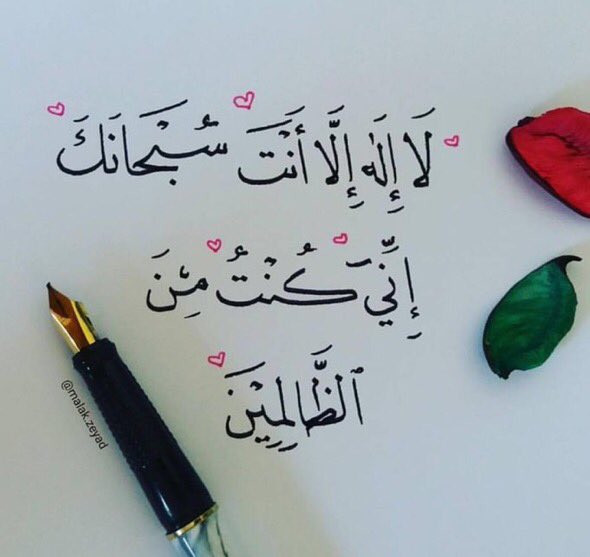 لَا إِلَٰهَ إِلَّا أَنْتَ سُبْحَانَكَ
إِنِّي كُنْتُ مِنَ
الظَّالِمِيْنَ
@malak.zeyad